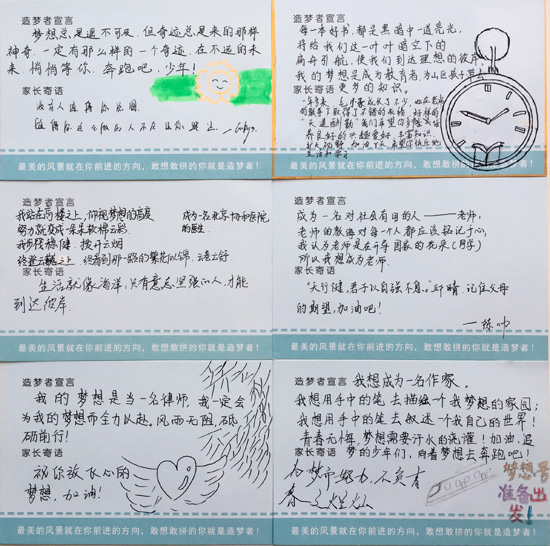 造梦者宣言
梦想总是遥不可及,但奇迹总是来的那样
神奇。一定有那么样的一个奇迹,在不远的未
来,悄悄等你,奔跑吧,少年!
家长寄语
没有人值得你流泪
值得你这么做的人不会让你哭泣
最美的风景就在你前进的方向,敢想敢拼的你就是造梦者!
造梦者宣言
每一本好书,都是黑暗中一道亮光,
将给我们这一叶叶暗空下的
扁舟引航,使我们到达理想的彼岸。
我的梦想是成为教育者,为山区孩子带去
更多的知识。
家长寄语
养良好的兴趣爱好,丰富知识
最美的风景就在你前进的方向,敢想敢拼的你就是造梦者!
造梦者宣言
努力就变成一朵朵软绵云彩
我步履稳健,拨开云烟
终看到那一路的繁花似锦,云卷云舒
成为一名北京协和医院
的医生
家长寄语
生活就像海洋,只有意志坚强的人,才能
到达彼岸。
最美的风景就在你前进的方向,敢想敢拼的你就是造梦者!
造梦者宣言
成为一名对社会有用的人——老师,
老师的教诲对每一个人都应该铭记于心,
我认为老师是在守护国家的花朵(同学)
所以我想成为老师。
家长寄语
“天行健,君子以自强不息。”邱晴,记住父母
的期望,加油吧!
最美的风景就在你前进的方向,敢想敢拼的你就是造梦者!
造梦者宣言
我的梦想是当一名律师,我一定会
为我的梦想而全力以赴。风雨无阻,砥
砺前行!
家长寄语
祝你放飞心的
梦想,加油!
最美的风景就在你前进的方向,敢想敢拼的你就是造梦者!
造梦者宣言
我想成为一名作家。
我想用手中的笔去描绘一个我梦想的家园;
我想用手中的笔去叙述一个我自己的世界!
青春无悔,梦想需要汗水的浇灌!加油,追
梦的少年们,向着梦想去奔跑吧!
家长寄语
为梦而努力,不负青
春之灿烂
梦想号
准备出
发!
最美的风景就在你前进的方向,敢想敢拼的你就是造梦者!